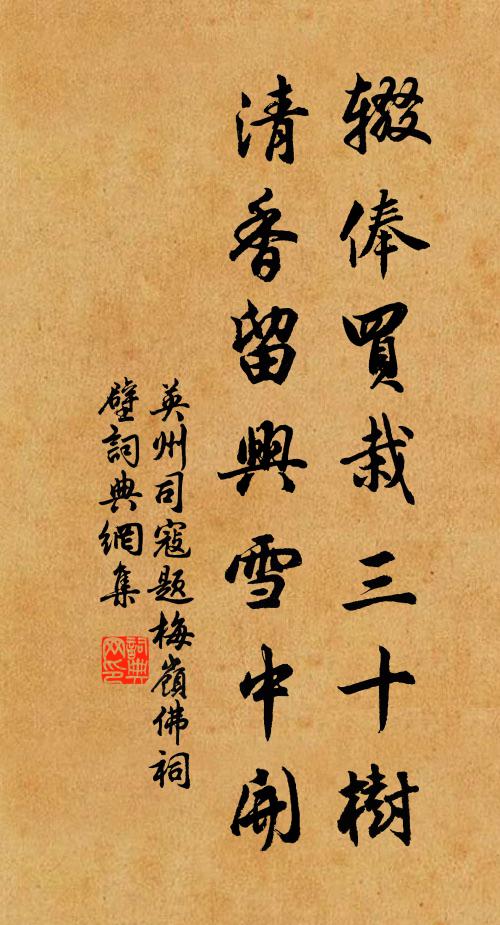 辍俸買栽三十樹
清香留興雪中開
英州司寇題梅嶺佛祠
壁詞典網集
詞典网印